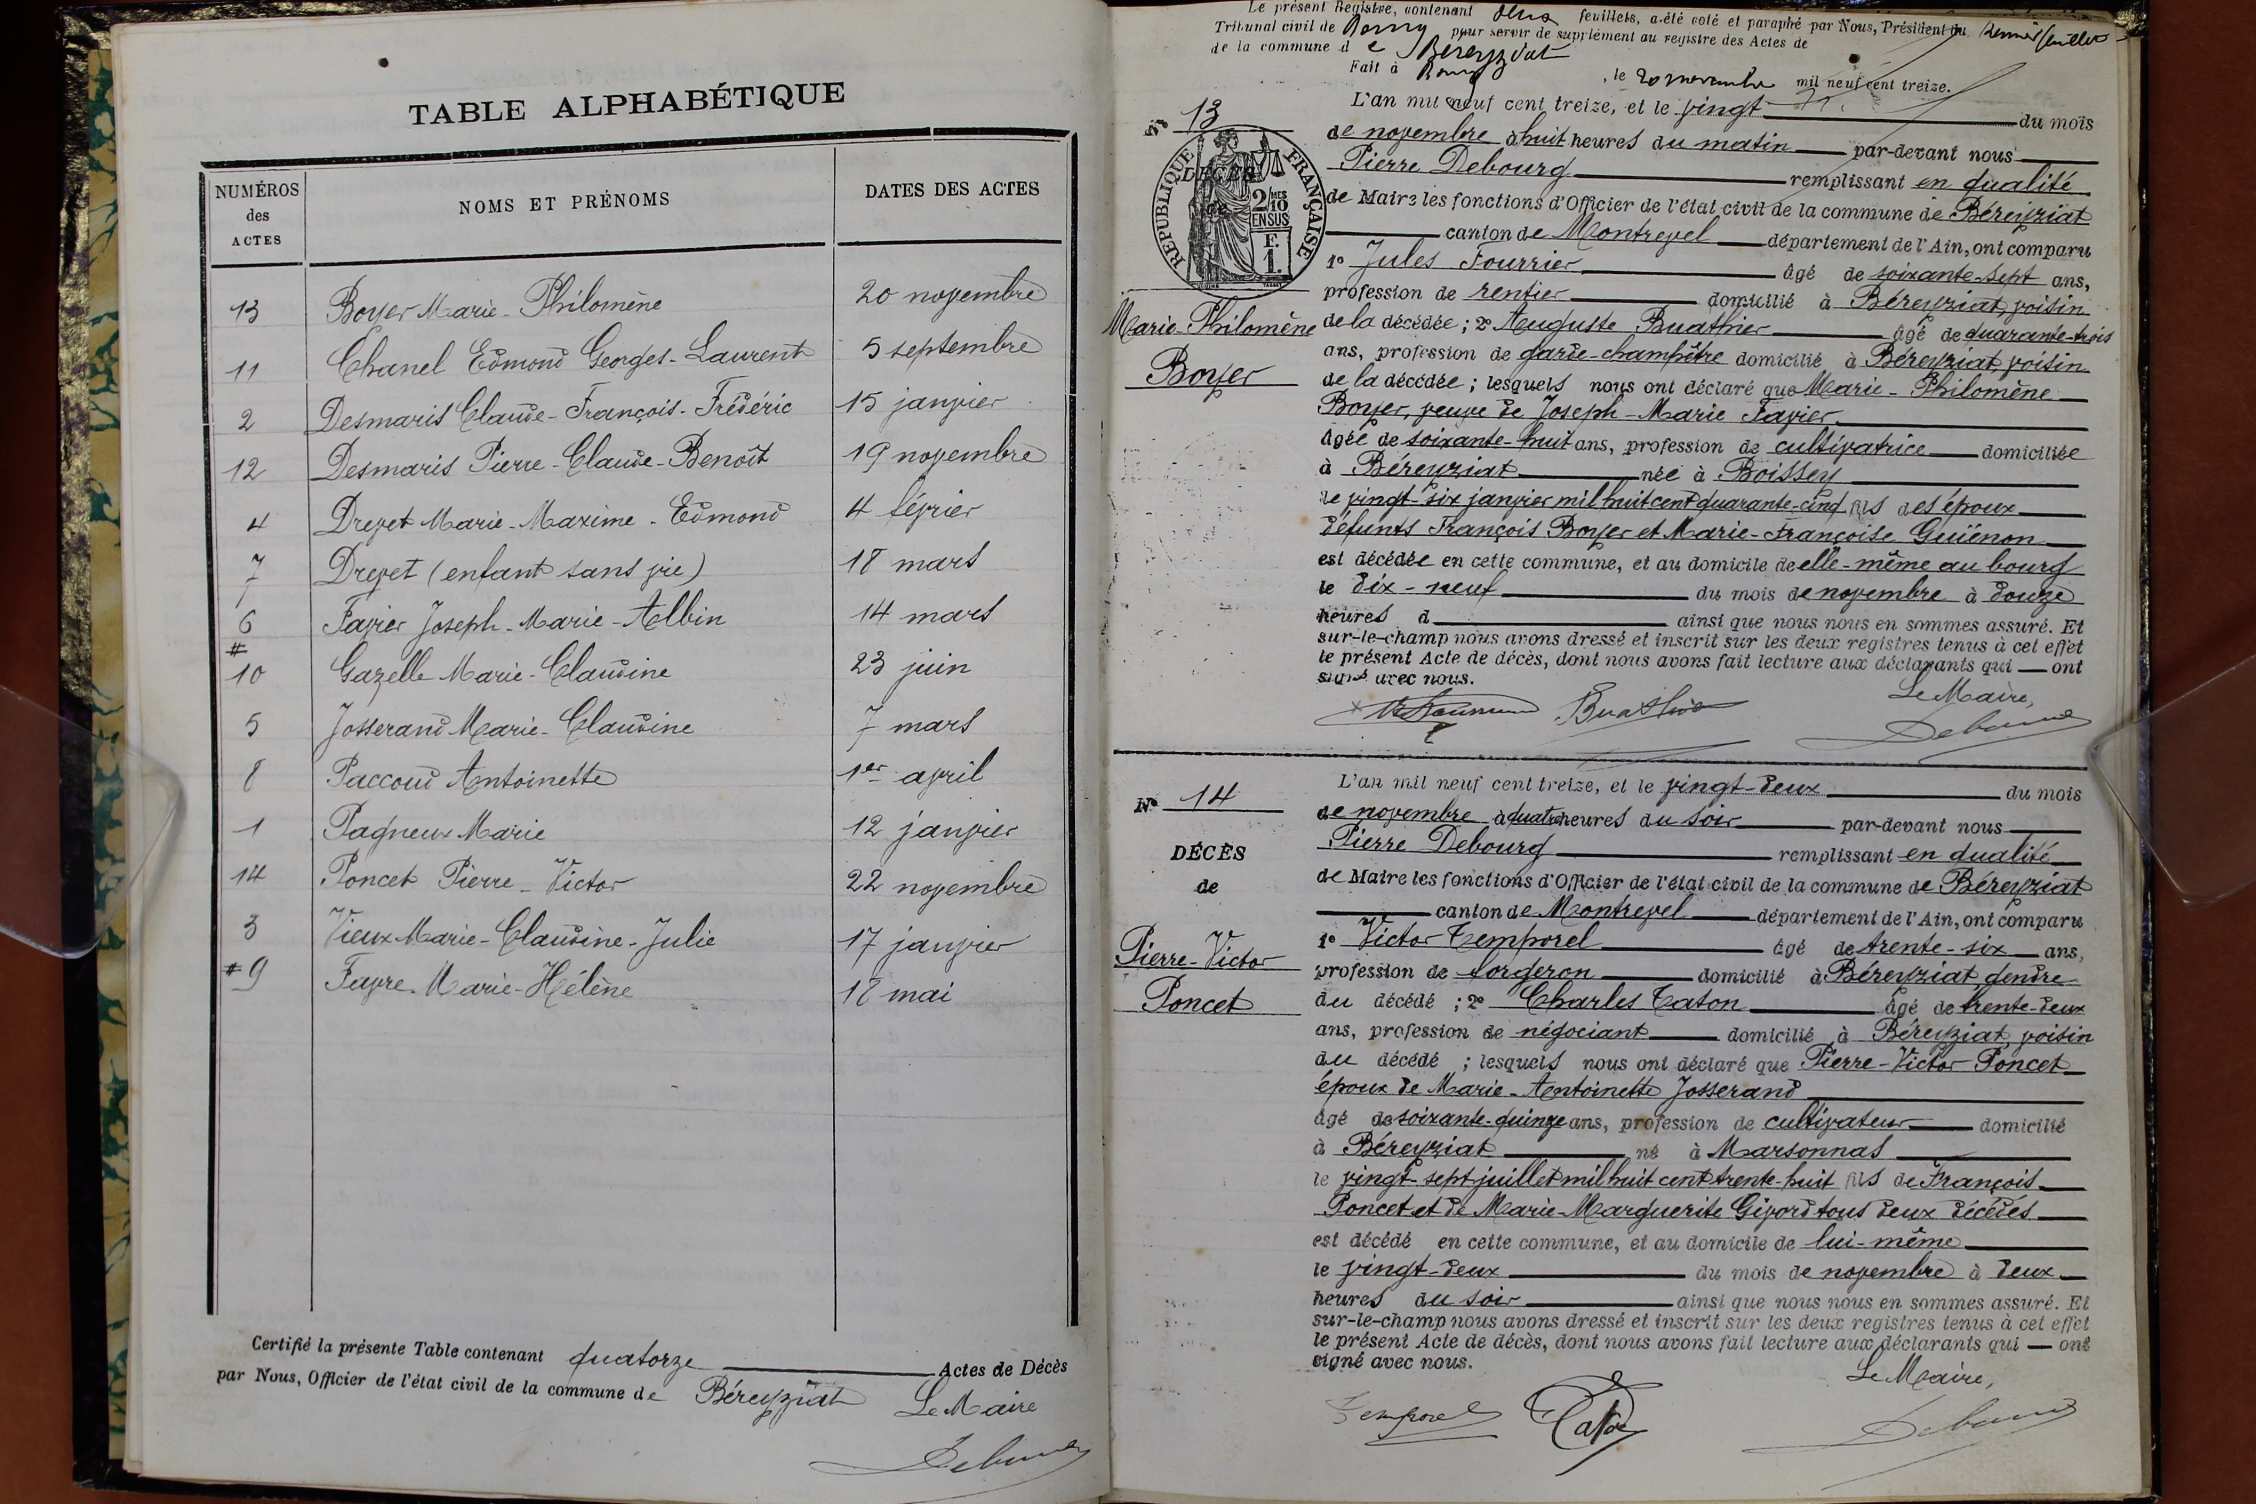 TABLE ALPHABÉTIQUE
NUMÉROS des ACTES
NOMS ET PRÉNOMS
DATES DES ACTES
13 Boyer Marie-Philomène 20 novembre
11 Chanel Edmond Georges-Laurent 5 septembre
2 Desmaris Claude-François-Frédéric 15 janvier
12 Desmaris Pierre-Claude-Benoît 19 novembre
4 Drevet Marie-Maxime-Edmond 4 février
7 Drevet (enfant sans vie) 18 mars
6 Favier Joseph-Marie-Albin 14 mars
#
10 Gazelle Marie-Claudine 23 juin
5 Josserand Marie-Claudine 7 mars
8 Paccoud Antoinette 1er avril
1 Pagneux Marie 12 janvier
14 Poncet Pierre-Victor 22 novembre
3 Vieux Marie-Claudine-Julie 17 janvier
# 9 Favre Marie-Hélène 18 mai
Certifié la présente Table contenant quatorze Actes de Décès
par Nous, Officier de l'état civil de la commune de Béreyziat Le Maire
Le présent Registre, contenant deux feuillets, a été coté et paraphé par Nous, Président du
Tribunal civil de Bourg pour servir de supplément au registre des Actes de
de la commune de Béreyziat
Fait à Bourg, le 20 novembre mil neuf cent treize.
N° 13
RÉPUBLIQUE FRANÇAISE
DÉCÈS
de
2/10MES
EN SUS
F.
1.
Marie-Philomène
Boyer
L'an mil neuf cent treize, et le vingt du mois
de novembre à huit heures du matin par-devant nous
Pierre Debourg remplissant en qualité
de Maire les fonctions d'Officier de l'état civil de la commune de Béreyziat
canton de Montrevel département de l'Ain, ont comparu
1° Jules Fourrier âgé de soixante-sept ans,
profession de rentier domicilié à Béreyziat, voisin
de la décédée ; 2° Auguste Buathier âgé de quarante-trois
ans, profession de garde-champêtre domicilié à Béreyziat, voisin
de la décédée ; lesquels nous ont déclaré que Marie-Philomène
Boyer, veuve de Joseph-Marie Favier
âgée de soixante-huit ans, profession de cultivatrice domiciliée
à Béreyziat née à Boissey
le vingt-six janvier mil huit cent quarante-cinq fils des époux
défunts François Boyer et Marie-Françoise Guienon
est décédée en cette commune, et au domicile de elle-même au bourg
le dix-neuf du mois de novembre à douze
heures d ainsi que nous nous en sommes assuré. Et
sur-le-champ nous avons dressé et inscrit sur les deux registres tenus à cet effet
le présent Acte de décès, dont nous avons fait lecture aux déclarants qui ont
signé avec nous.
Le Maire,
N° 14
DÉCÈS
de
Pierre-Victor
Poncet
L'an mil neuf cent treize, et le vingt-deux du mois
de novembre à quatre heures du soir par-devant nous
Pierre Debourg remplissant en qualité
de Maire les fonctions d'Officier de l'état civil de la commune de Béreyziat
canton de Montrevel département de l'Ain, ont comparu
1° Victor Temporel âgé de trente-six ans,
profession de forgeron domicilié à Béreyziat, gendre
du décédé ; 2° Charles Caton âgé de trente-deux
ans, profession de négociant domicilié à Béreyziat, voisin
du décédé ; lesquels nous ont déclaré que Pierre-Victor Poncet
époux de Marie-Antoinette Josserand
âgé de soixante-quinze ans, profession de cultivateur domicilié
à Béreyziat né à Marsonnas
le vingt-sept juillet mil huit cent trente-huit fils de François
Poncet et de Marie-Marguerite Givord tous deux décédés
est décédé en cette commune, et au domicile de lui-même
le vingt-deux du mois de novembre à deux
heures du soir ainsi que nous nous en sommes assuré. Et
sur-le-champ nous avons dressé et inscrit sur les deux registres tenus à cet effet
le présent Acte de décès, dont nous avons fait lecture aux déclarants qui ont
signé avec nous.
Le Maire,
Temporel